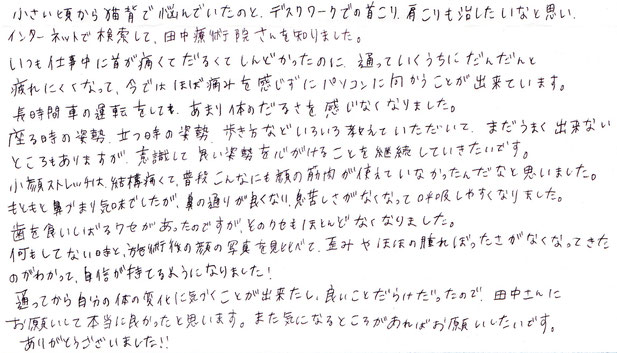 小さい頃から猫背で悩んでいたのと、デスクワークでの首こり、肩こりも治したいなと思い、
インターネットで検索して、田中療術院さんを知りました。
いつも仕事中に首が痛くてだるくてしんどかったのに、通っていくうちにだんだんと
疲れにくくなって、今ではほぼ痛みを感じずにパソコンに向かうことが出来ています。
長時間車の運転をしても、あまり体のだるさを感じなくなりました。
座る時の姿勢、立つ時の姿勢、歩き方などいろいろ教えていただいて、まだうまく出来ない
ところもありますが、意識して良い姿勢を心がけることを継続していきたいです。
小顔ストレッチは、結構痛くて、普段こんなにも顔の筋肉が使えていなかったんだなと思いました。
もともと鼻づまり気味でしたが、鼻の通りが良くなり、息苦しさがなくなって呼吸しやすくなりました。
歯を食いしばるクセがあったのですが、そのクセもほとんどなくなりました。
何もしてない時と、施術後の顔の写真を見比べて、歪みやほほの腫れぼったさがなくなってきた
のがわかって、自信が持てるようになりました！
通ってから自分の体の変化に気づくことが出来たし、良いことだらけだったので、田中さんに
お願いして本当に良かったと思います。また気になるところがあればお願いしたいです。
ありがとうございました!!